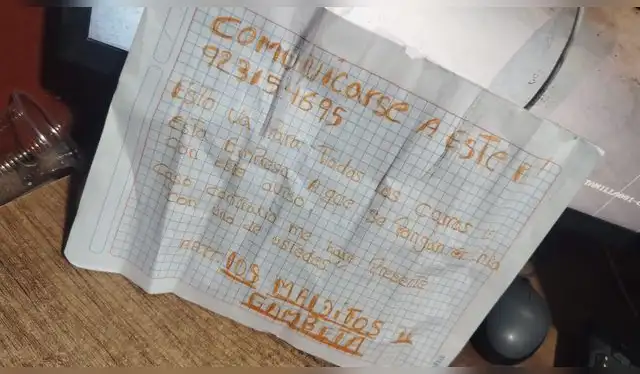 COMUNICARSE A ESTE N°
923154695
Esto va para todas las
esta Empresa A que se pongan en
con este aviso
Caso contrario me hare presente
con uno de ustedes
ATT: LOS MALDITOS
GAMBETA